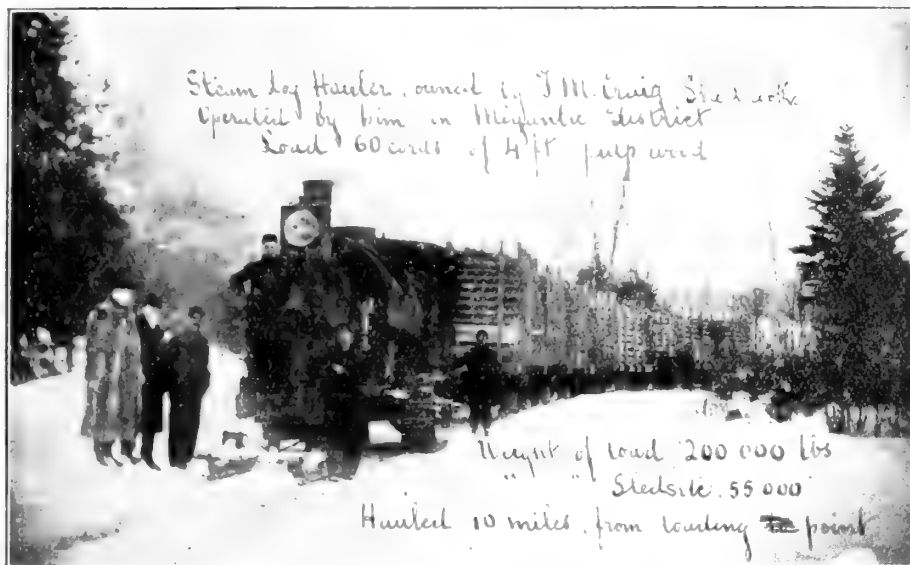 Steam Log Hauler, owned by J M. Craig
Operated by him in Megantic District
Load 60 cords of 4 ft pulp wood
Weight of load 200 000 lbs
" " Sled 55 000
Hauled 10 miles, from loading point